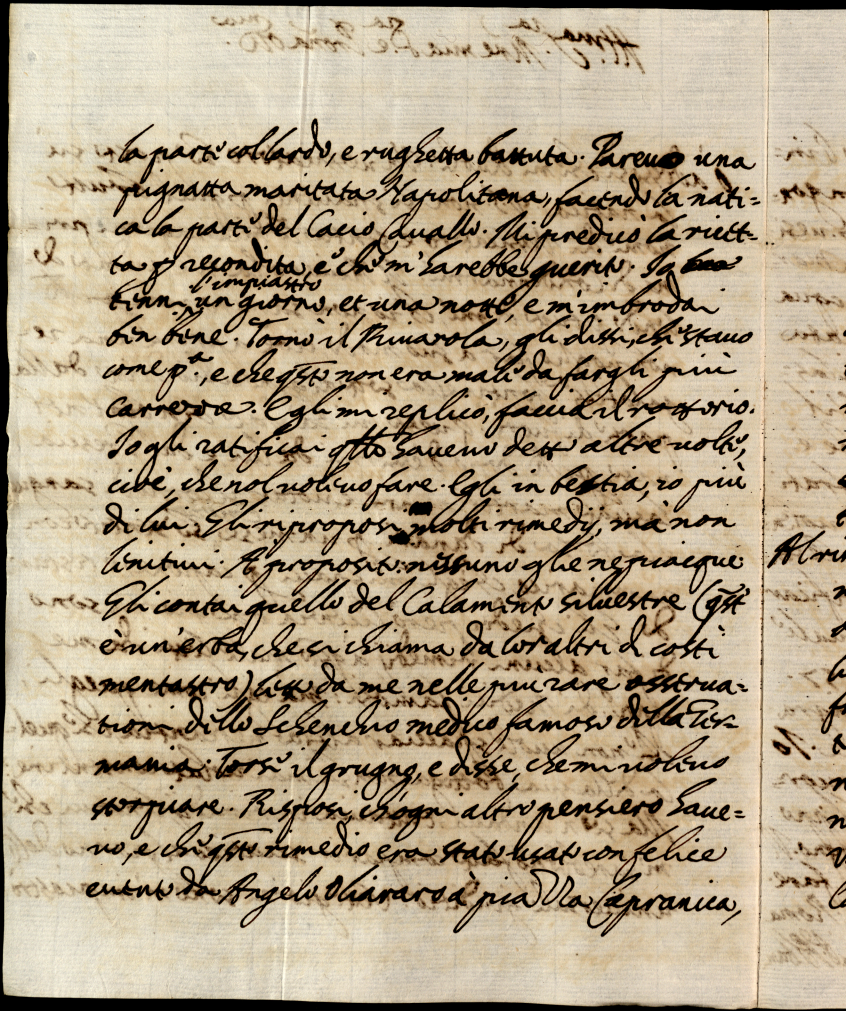 la parte col lardo, e rughetta battuta. Pareua una
pignatta maritata Napolitana, facendo la nati=
ca la parte del Cacio Cauallo. Mi predicò la ricet=
ta p recondita, e che m'harebbe guerito. Io
tenni l'impiastro un giorno, et una notte, e m'imbrodai
ben bene. Tornò il Riuarola, gli dissi, che stauo
come p.ª, e che qsto non era male da fargli più
carrozze. Egli mi replicò, faccia il rottorio.
Io gli ratificai qtto haueuo detto altre uolte,
cioè, che nol uoleuo fare. Egli in bestia, io più
di lui. Gli riproposi molti rimedij, mà non
lenitiui. A proposito: nissuno gliene piacque
Gli contai quello del Calamento siluestre (qsta
è un'erba, che si chiama da lor altri di costì
mentastro) letto da me nelle più rare osserua=
tioni dello Schenchio medico famoso della Ger=
mania. Torse il grugno, e disse, che mi uoleuo
storpiare. Risposi, ch'ogni altro pensiero haue=
uo, e che qsto rimedio era stato usato con felice
euento da Angelo Oliararo à piazza Capranica,
Al ri